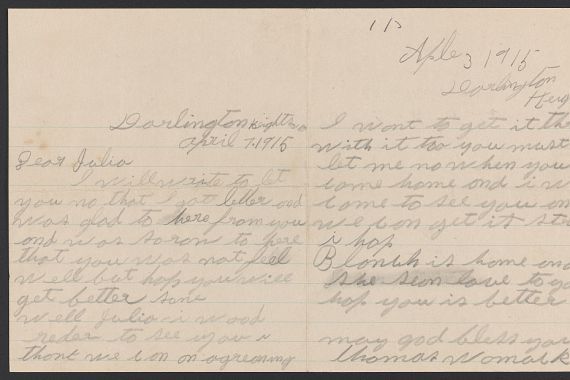 Darlington Heights va
April 7-1915
Dear Julia
I will write to let
you no that I got letter ond
was glad to here from you
ond was soron to here
that you was not feel
well but hop you will
get better sone
well Julia i wood
reder to see you
thonk we con on agreaning
(1)
Aple 3 1915
Darlington
Heig
I wont to get it thr
with it too you must
let me no when you
come home ond i w
come to see you on
we con get it str
i hop
Blonch is home ond
she sean love to yo
hop you is better
may god bless you
thomas womack